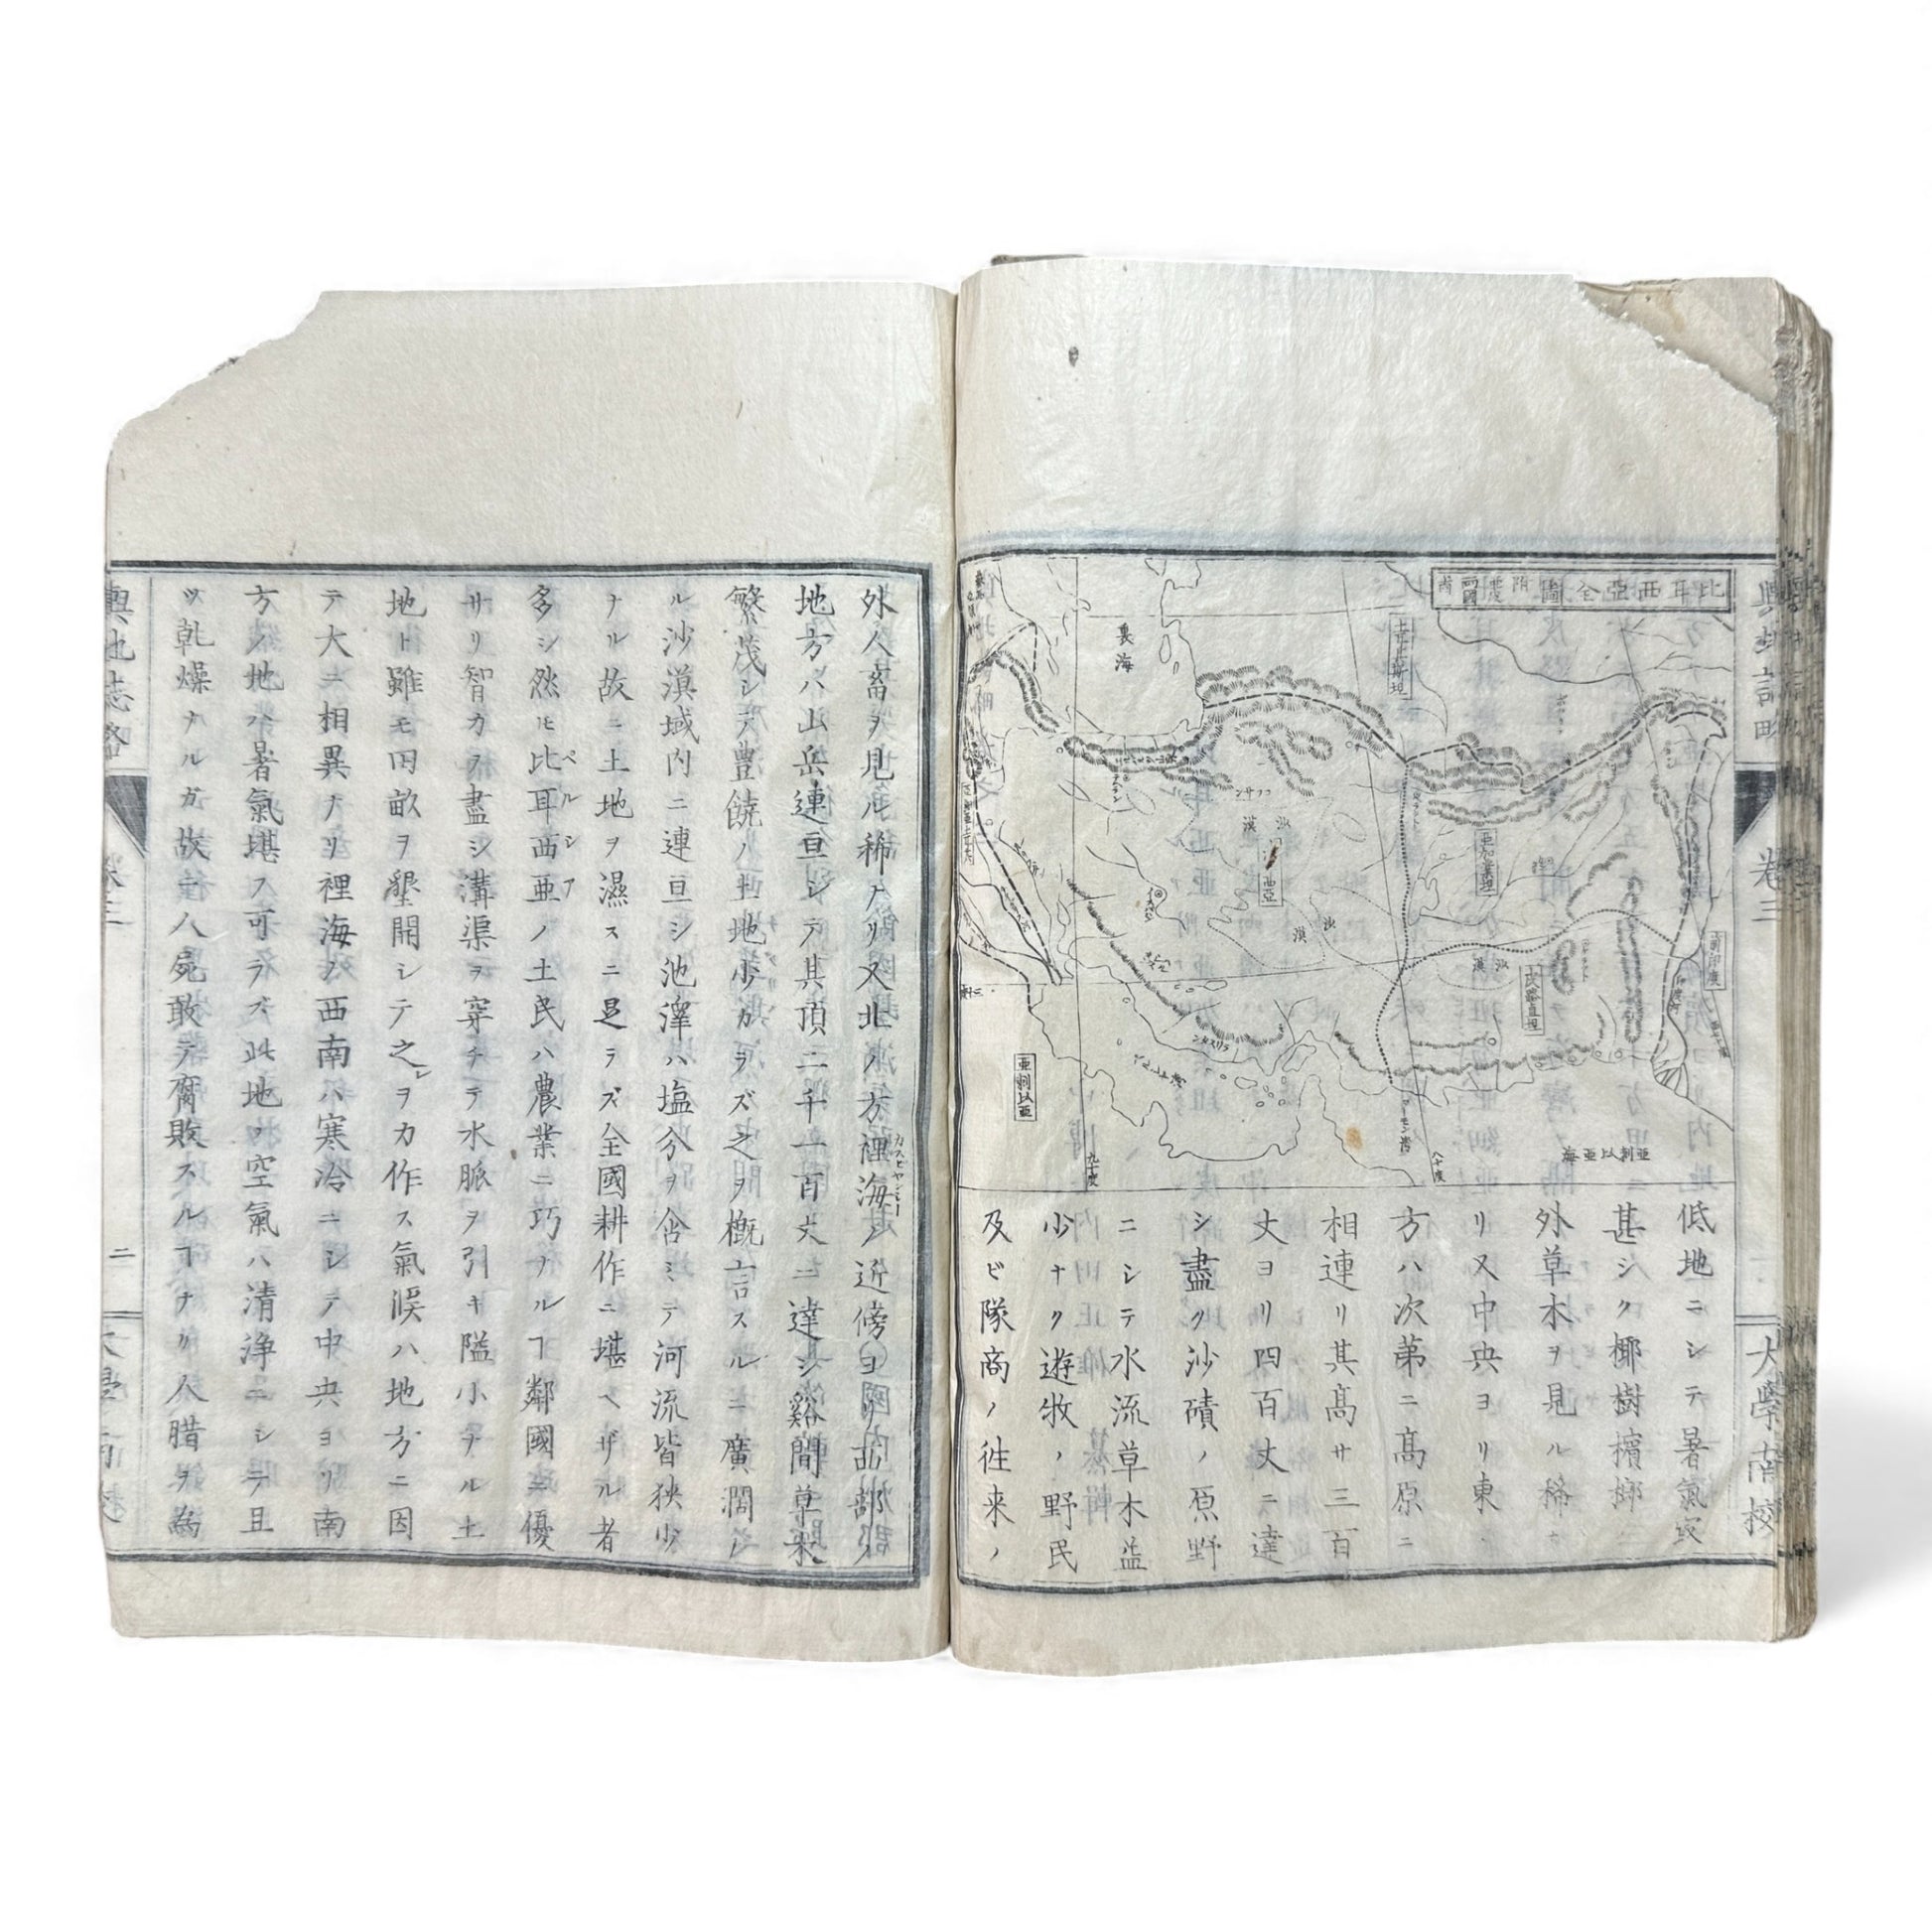 比耳西亞全圖
裏海
沙漠
沙漠
沙漠
亞剌以亞
亞剌以亞海
九十度
八十度
低地ニシテ暑氣最
甚シク椰樹檳榔ノ
外草木ヲ見ル稀ナ
リ又中央ヨリ東ノ
方ハ次第ニ髙原ニ
相連リ其髙サ三百
丈ヨリ四百丈ニ達
シ盡ク沙磧ノ原野
ニシテ水流草木益
少ナク遊牧ノ野民
及ビ隊商ノ徃来ノ
輿地誌略
卷三
大學南校
外人畜ヲ見ル稀ナリ又北ノ方裡海カスピヤンシーノ近傍ヨリ西北部ノ
地方ハ山岳連亘シテ其頂二千一百丈ニ達シ谿間草木
繁茂シテ豊饒ノ土地少カラズ之ヲ概言スルニ廣濶ナ
ル沙漠域内ニ連亘シ池澤ハ塩分ヲ含ミテ河流皆狭少
ナル故ニ土地ヲ濕スニ足ラズ全國耕作ニ堪ヘザル者
多シ然ルモ比耳西亜ペルシアノ土民ハ農業ニ巧ナルヿ鄰國ニ優
サリ智力ヲ盡シ溝渠ヲ穿チテ水脈ヲ引キ隘小ナル土
地ト雖モ田畝ヲ墾開シテ之ヲ力作ス氣候ハ地方ニ因
テ大ニ相異ナリ裡海ノ西南ハ寒冷ニシテ中央ヨリ南
方ノ地ハ暑氣堪フ可ラズ此地ノ空氣ハ清浄ニシテ且
ツ乾燥ナルガ故ニ人屍敢テ腐敗スルヿナリ人腊ヲ為
輿地誌畧
卷三
二
大學南校